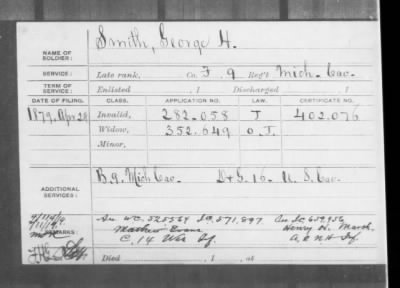 NAME OF SOLDIER: Smith, George H.
SERVICE: Late rank, Co. F 9 Reg't Mich. Cav.
TERM OF SERVICE: Enlisted , 1 Discharged , 1
DATE OF FILING. CLASS. APPLICATION NO. LAW. CERTIFICATE NO.
1879, Apr 28 Invalid, 282.058 J 402.076
Widow, 352.649 O.I.
Minor,
ADDITIONAL SERVICES: B. 9. Mich Cav. D & G. 16. U. S. Cav.
REMARKS: An WC. 525564 IC, 571,897 An IC 659,956
Mathew Evans Henry H. Marsh
C. 14 Wis Inf.
Died , 1 , at